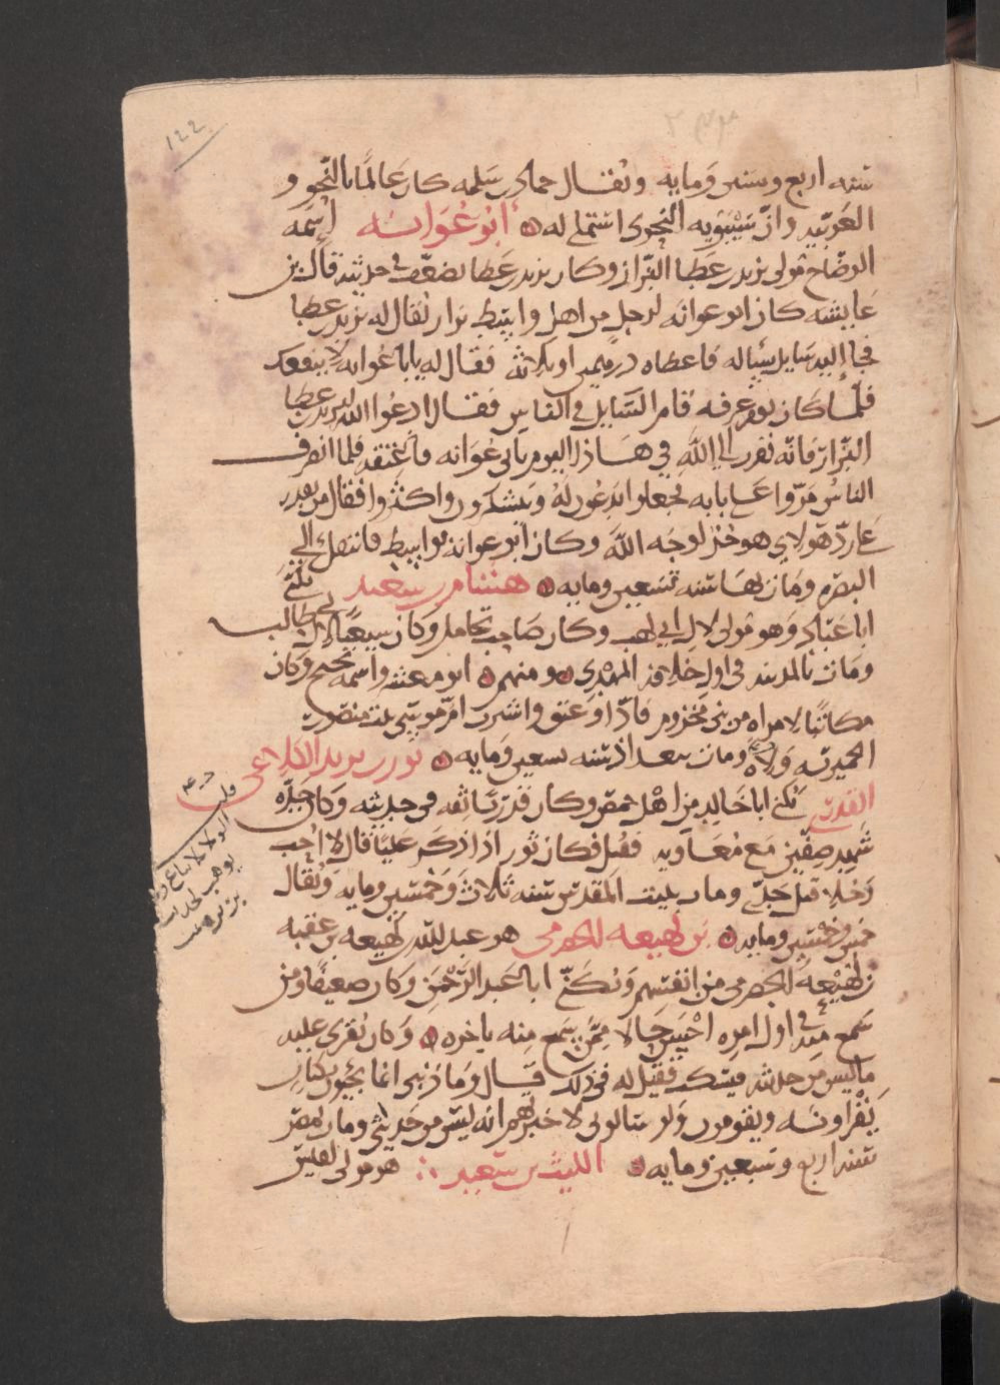 ١٤٤
سنه اربع وستين ومايه ويقال حماد بن سلمه كان عالما بالنحو و
العربيه وان سيبويه النحوي استملى له ابو عوانه اسمه
الوضاح مولى يزيد بن عطا البزاز وكان يزيد بن عطا يضعف في حديثه قال بن
عايشه كان ابو عوانه لرجل من اهل واسط بزاز يقال له يزيد بن عطا
فجا اليه سايل يساله فاعطاه درهمين او ثلاثه فقال له يابا عوانه لانفعنك
فلما كان يوم عرفه قام السايل في الناس فقال ادعوا الله ليزيد بن عطا
البزاز فانه تقرب الي الله في هاذا اليوم بابي عوانه فاعتقه فلما انصرف
الناس مروا على بابه فجعلوا يدعون له ويشكرون واكثروا فقال من يقدر
على رد هولاي هو حر لوجه الله وكان ابو عوانه بواسط فانتقل الي
البصره ومات بها سنه تسعين ومايه هشام بن سعيد يكنى
ابا عباد وهو مولى لال ابي لهب وكان صاحب محامل وكان شيعيا لال ابي طالب
ومات بالمدينه في اول خلافه المهدي ومنهم ابو معشر واسمه نجيح وكان
مكاتبا لامراه من بني مخزوم فادا وعتق واشترت ام موسى بنت منصور
الحميريه ولاه ومات ببغداد سنه سبعين ومايه ثور بن يزيد الكلاعي
القدري يكنى ابا خالد من اهل حمص وكان قدريا ثقه في حديثه وكان جده
شهد صفين مع معاويه فقتل فكان ثور اذا ذكر عليا قال لا احب
رجلا قتل جدي ومات ببيت المقدس سنه ثلاث وخمسين ومايه ويقال
خمس وخمسين ومايه بن لهيعه الحضرمي هو عبد الله بن لهيعه بن عقبه
بن لهيعه الحضرمي من انفسهم ويكنى ابا عبد الرحمن وكان ضعيفا ومن
سمع منه في اول امره احسن حالا ممن سمع منه باخره وكان يقرى عليه
ماليس من حديثه فيسكت فقيل له في ذلك قال وما ذنبي انما يجيون بكتاب
يقراونه ويقومون ولو سالوني لاخبرتهم انه ليس من حديثي ومات بمصر
سنه اربع وسبعين ومايه الليث بن سعيد هو مولى لقيس
قلت
الولا لا يباع ولا
يوهب لحديث